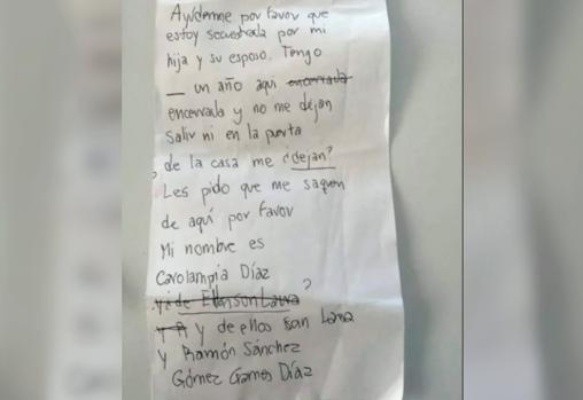 Ayúdenme por favor que
estoy secuestrada por mi
hija y su esposo. Tengo
— un año aqui encerrada
encerrada y no me dejan
salir ni en la puerta
de la casa me ¿dejan?
Les pido que me saquen
de aquí por favor
Mi nombre es
Carolampia Díaz
?
y de ellos son Lana
y Ramón Sánchez
Gómez Games Díaz